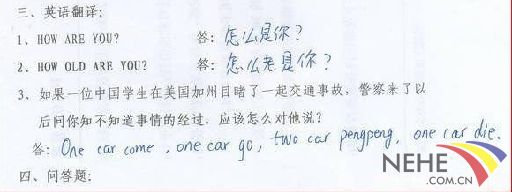 三、英语翻译:
1、HOW ARE YOU? 答: 怎么是你?
2、HOW OLD ARE YOU? 答: 怎么老是你?
3、如果一位中国学生在美国加州目睹了一起交通事故，警察来了以
后问你知不知道事情的经过，应该怎么对他说？
答: One car come, one car go, two car pengpeng, one car die.
四、问答题:
NEHE
.COM.CN